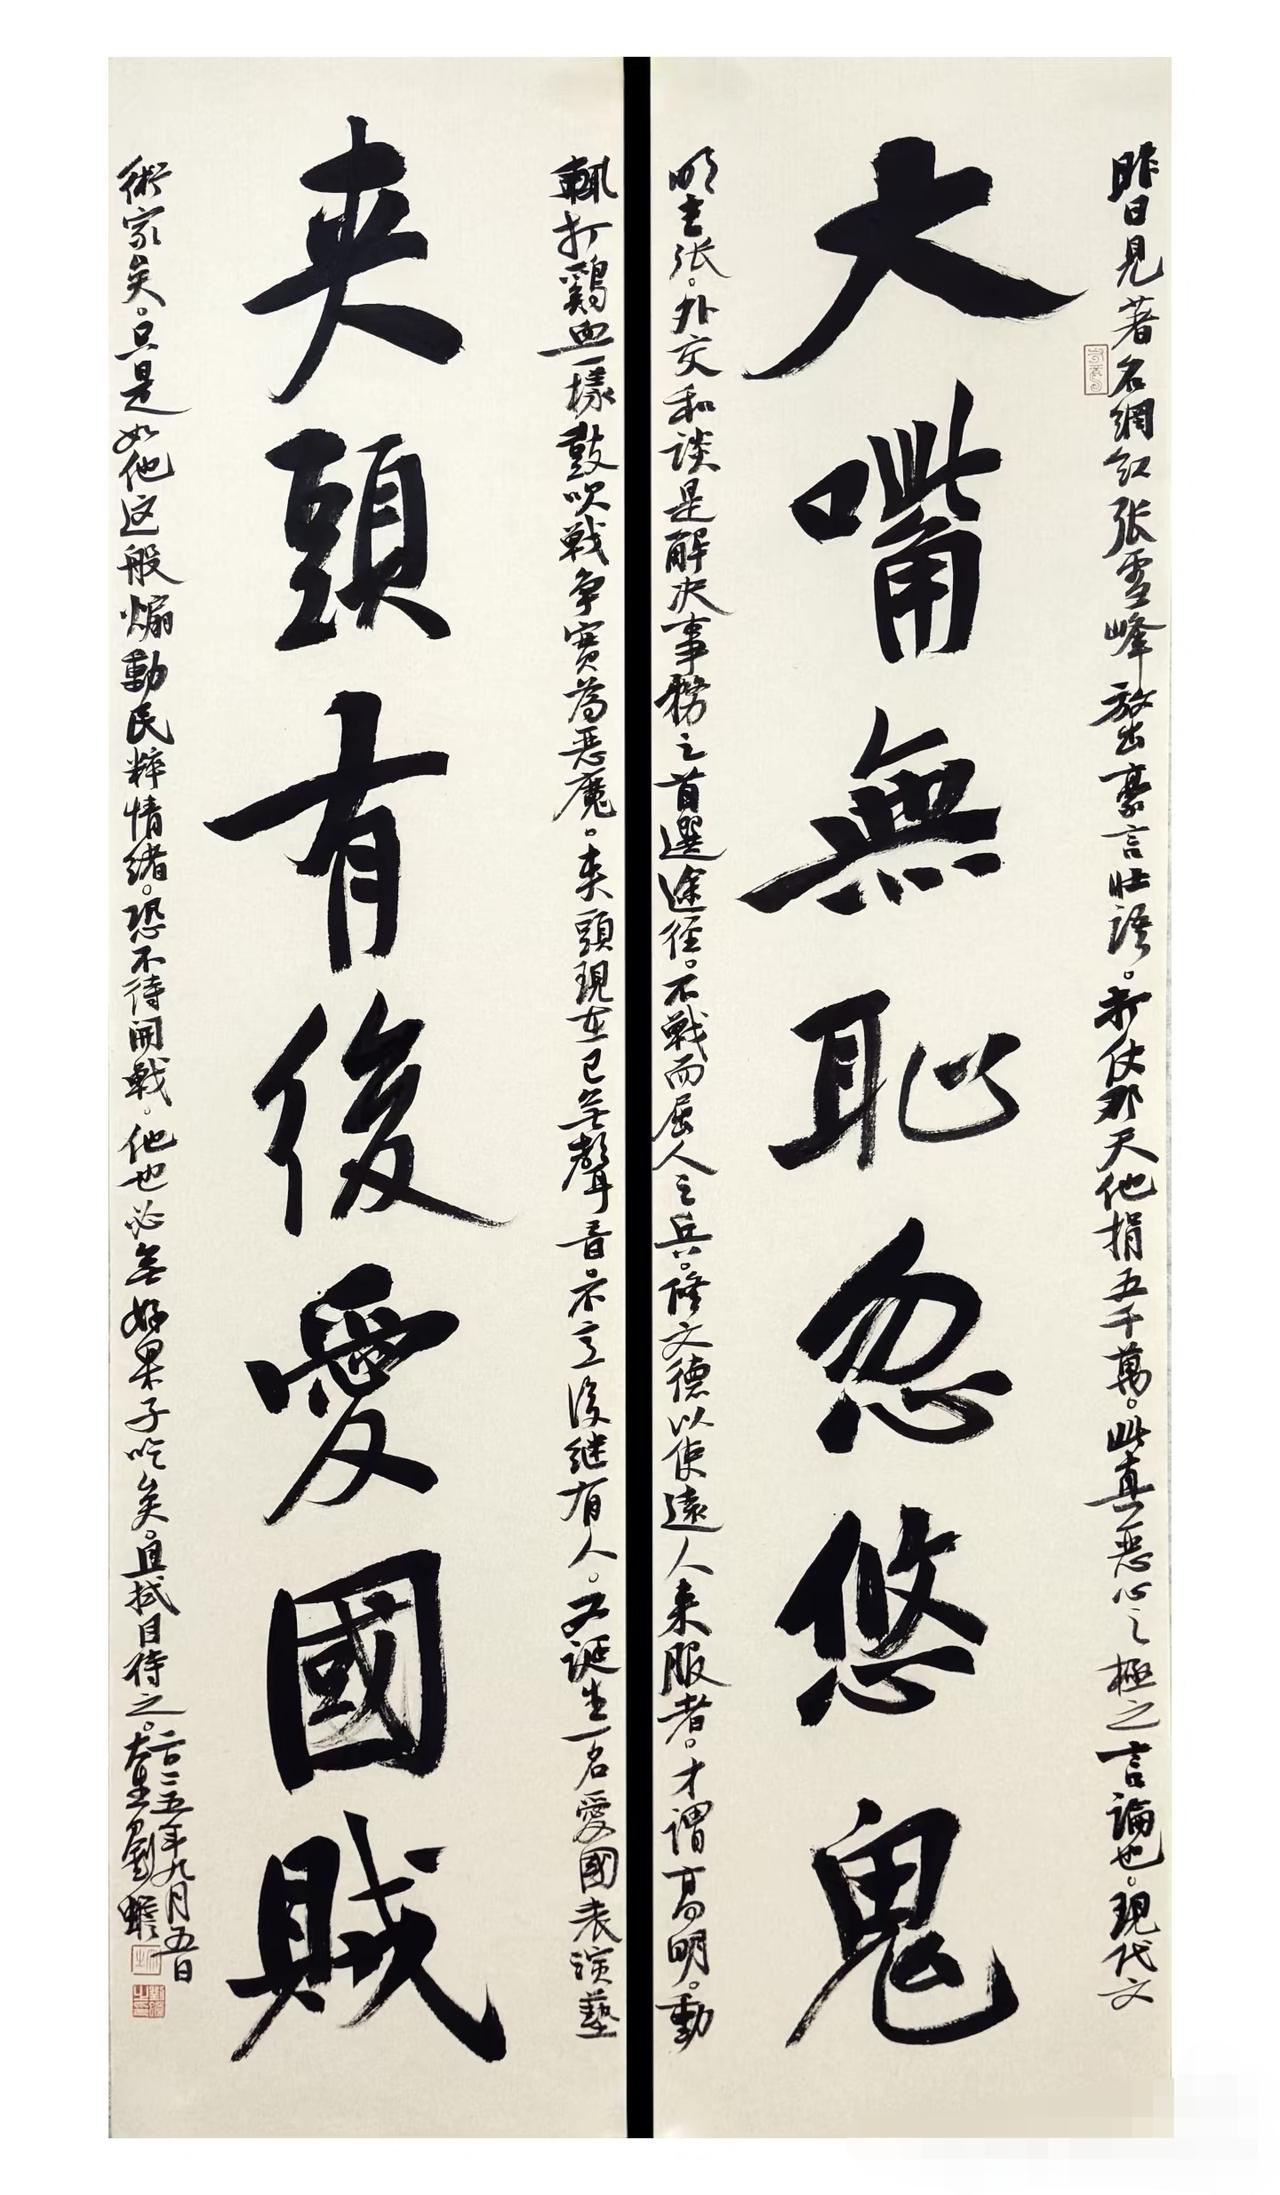 昨日見著名網红张雪峰放出豪言壮语。打仗那天他捐五千萬。此真恶心之極之言論也。現代文
大嘴無恥忽悠鬼
明主张。外交和谈是解决事務之首選途径。不戰而屈人之兵。修文德以使遠人来服者。才謂高明。動
輒打鷄血一樣鼓吹戰争實為恶魔。夹頭現在已无聲音。不意後继有人。又诞生一名愛國表演藝
夹頭有後愛國賊
術家矣。只是如他这般煽動民粹情绪。恐不待開戰。他也必無好果子吃矣。且拭目待之。
二〇二五年九月五日
劉蟾